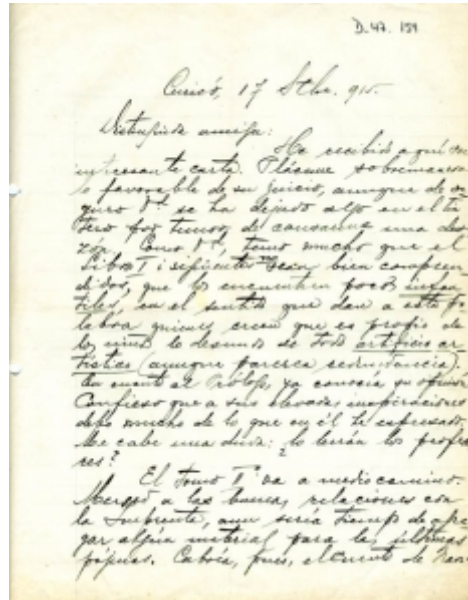 D. 47. 159
Curicó, 17 Stbr. 915.
Distinguida amiga:
He recibido aquí su
interesante carta. Pláceme sobremanera
lo favorable de su juicio, aunque de se
guro Vd. se ha dejado algo en el tin
tero por temor de causarme una desa
zón. Como Vd., temo mucho que el
Libro I i siguientes sean bien compren
didos, que los encuentren pocos infan
tiles, en el sentido que dan a esta pa
labra quienes creen que es propio de
los niños lo desnudo de todo artificio ar
tístico (aunque parezca redundancia).
En cuanto al Prólogo, ya conocía su opinión.
Confieso que a sus elevadas inspiraciones
debo mucho de lo que en él he expresado.
Me cabe una duda: ¿lo leerán los profeso
res?
El Tomo II va a medio camino.
Merced a las buenas relaciones con
la Imprenta, aun sería tiempo de agre
gar algún material para las últimas
páginas. Cabría, pues, el cuento de